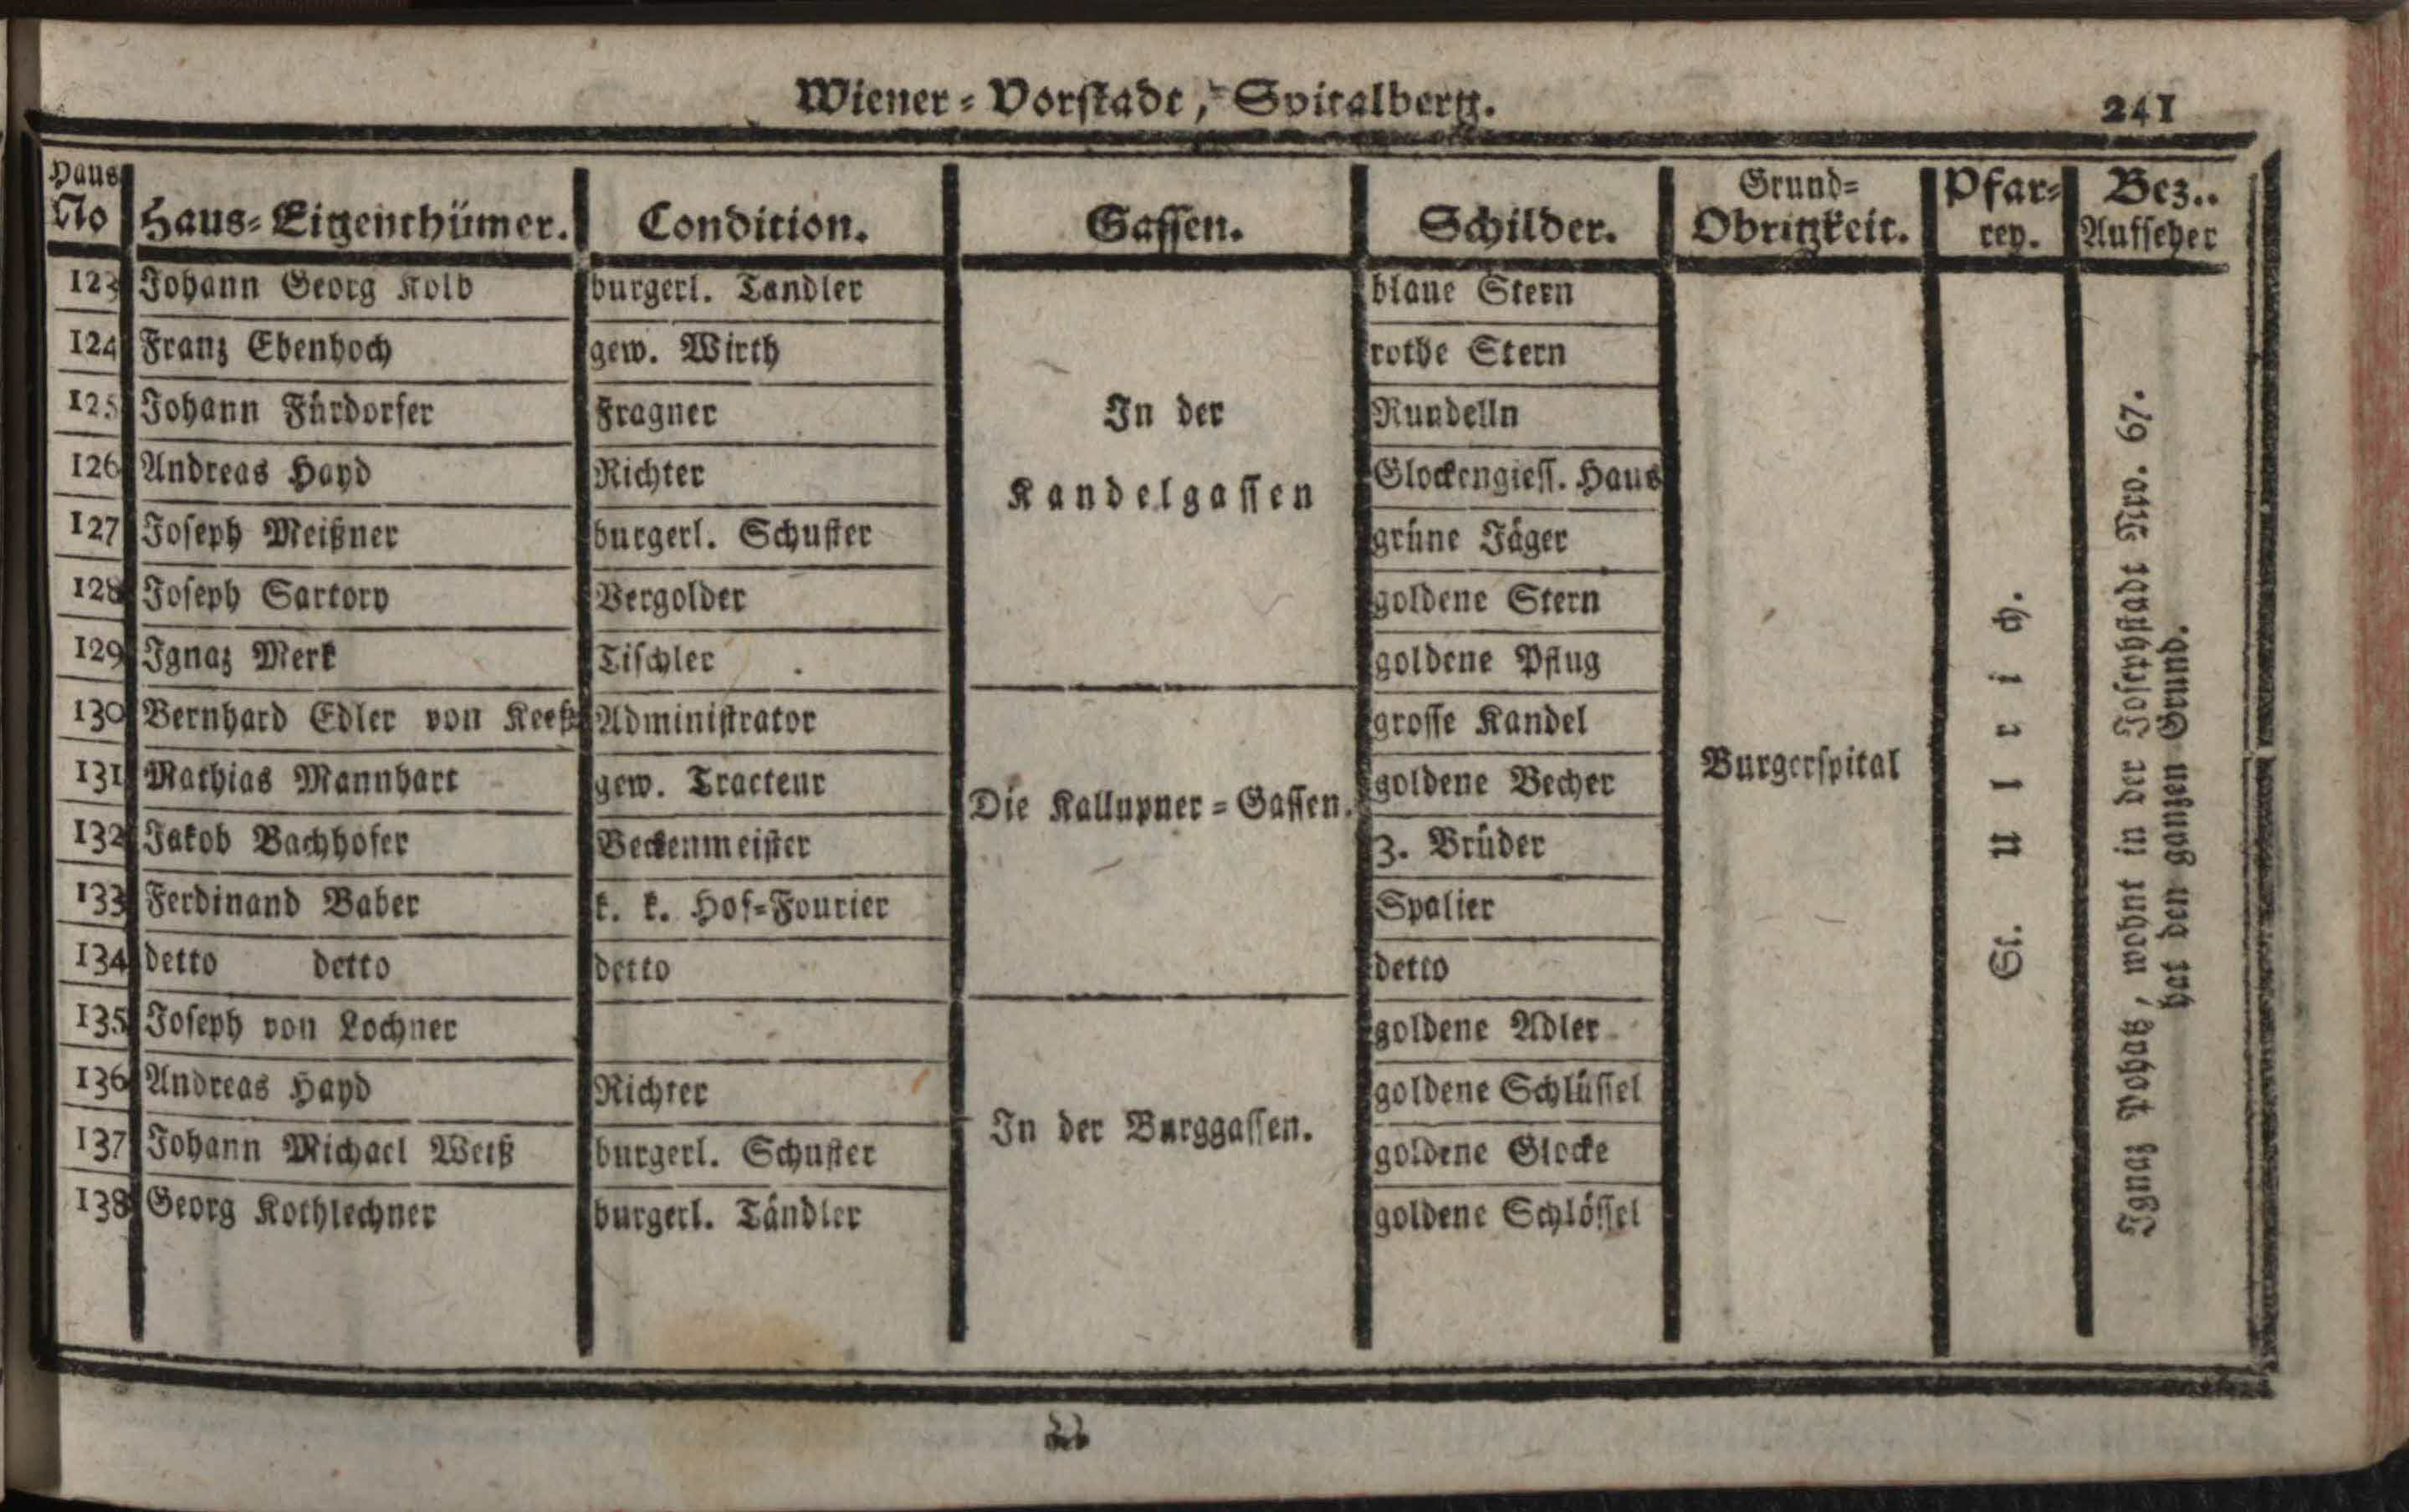 Wiener-Vorstadt, Spitalberg. 241
Haus No Haus-Eigenthümer. Condition. Gassen. Schilder. Grund-Obrigkeit. Pfarrey. Bez.. Aufseher
123 Johann Georg Kolb burgerl. Tandler blaue Stern
124 Franz Ebenhoch gew. Wirth rothe Stern
125 Johann Fürdorfer Fragner Rundelln
126 Andreas Hayd Richter Glockengiess. Haus
127 Joseph Meißner burgerl. Schuster grüne Jäger
128 Joseph Sartory Vergolder goldene Stern
129 Ignaz Merk Tischler goldene Pflug
In der
Kandelgassen
130 Bernhard Edler von Keeß Administrator grosse Kandel
131 Mathias Mannhart gew. Tracteur goldene Becher
132 Jakob Bachhofer Beckenmeister 3. Brüder
133 Ferdinand Baber k. k. Hof-Fourier Spalier
134 detto detto detto detto
Die Kallupner-Gassen.
135 Joseph von Lochner goldene Adler
136 Andreas Hayd Richter goldene Schlüssel
137 Johann Michael Weiß burgerl. Schuster goldene Glocke
138 Georg Kothlechner burgerl. Tändler goldene Schlössel
In der Burggassen.
Burgerspital
St. Ulrich.
Ignaz Pohatz, wohnt in der Josephstadt Nro. 67.
hat den ganzen Grund.